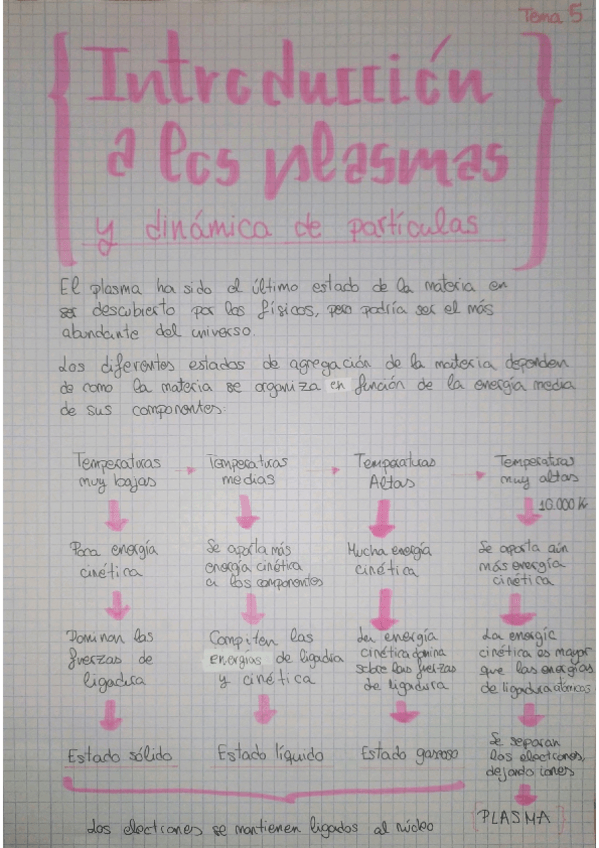 Tema 5
Introducción
a los plasmas
y dinámica de partículas
El plasma ha sido el último estado de la materia en
ser descubierto por los físicos, pero podría ser el más
abundante del universo.
Los diferentes estados de agregación de la materia dependen
de como la materia se organiza en función de la energía media
de sus componentes:
Temperaturas
muy bajas
Poca energía
cinética
Dominan las
fuerzas de
ligadura
Estado sólido
Temperaturas
medias
Se aporta más
energía cinética
a los componentes
Compiten las
energías de ligadura
y cinética
Estado líquido
Temperaturas
Altas
Mucha energía
cinética
La energía
cinética domina
sobre las fuerzas
de ligadura
Estado gaseoso
Temperaturas
muy altas
10.000 K
Se aporta aún
más energía
cinética
La energía
cinética es mayor
que las energías
de ligadura atómicas
Se separan
los electrones,
dejando iones
PLASMA
Los electrones se mantienen ligados al núcleo